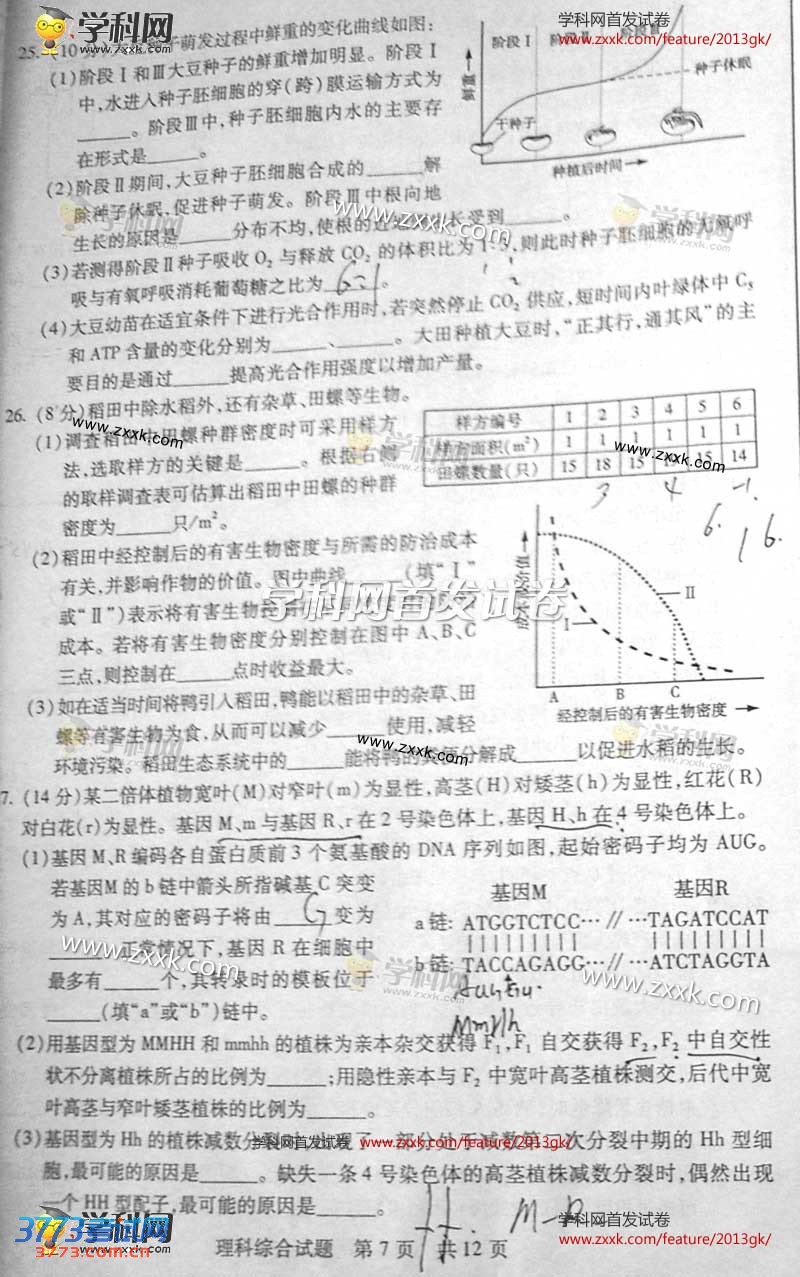 学科网
www.zxxk.com
学科网首发试卷
www.zxxk.com/feature/2013gk/
萌发过程中鲜重的变化曲线如图:
(1)阶段Ⅰ和Ⅲ大豆种子的鲜重增加明显。阶段Ⅰ
中,水进入种子胚细胞的穿(跨)膜运输方式为
______。阶段Ⅲ中,种子胚细胞内水的主要存
在形式是______。
阶段Ⅰ 阶段Ⅱ 阶段Ⅲ
鲜重
种子休眠
干种子
种植后时间
(2)阶段Ⅱ期间,大豆种子胚细胞合成的______解
除种子休眠,促进种子萌发。阶段Ⅲ中根向地
生长的原因是______分布不均,使根的近 长受到______。
(3)若测得阶段Ⅱ种子吸收O₂与释放CO₂的体积比为1:3,则此时种子胚细胞的无氧呼
吸与有氧呼吸消耗葡萄糖之比为 6:1 。
(4)大豆幼苗在适宜条件下进行光合作用时,若突然停止CO₂供应,短时间内叶绿体中C₅
和ATP含量的变化分别为______、______。大田种植大豆时,“正其行,通其风”的主
要目的是通过______提高光合作用强度以增加产量。
26. (8分)稻田中除水稻外,还有杂草、田螺等生物。
(1)调查稻田中田螺种群密度时可采用样方
法,选取样方的关键是______。根据右侧
的取样调查表可估算出稻田中田螺的种群
密度为______只/m²。
样方编号 1 2 3 4 5 6
样方面积(m²) 1 1 1 1 1 1
田螺数量(只) 15 18 15 15 14
3 4 -1.
6. 16.
(2)稻田中经控制后的有害生物密度与所需的防治成本
有关,并影响作物的价值。图中曲线______(填“Ⅰ”
或“Ⅱ”)表示将有害生物控制
成本。若将有害生物密度分别控制在图中A、B、C
三点,则控制在______点时收益最大。
Ⅰ Ⅱ
A B C
经控制后的有害生物密度
(3)如在适当时间将鸭引入稻田,鸭能以稻田中的杂草、田
螺等有害生物为食,从而可以减少______使用,减轻
环境污染。稻田生态系统中的______能将鸭的粪便分解成______以促进水稻的生长。
7. (14分)某二倍体植物宽叶(M)对窄叶(m)为显性,高茎(H)对矮茎(h)为显性,红花(R)
对白花(r)为显性。基因M、m与基因R、r在2号染色体上,基因H、h在4号染色体上。
(1)基因M、R编码各自蛋白质前3个氨基酸的DNA序列如图,起始密码子均为AUG。
若基因M的b链中箭头所指碱基C突变
为A,其对应的密码子将由 G 变为
______。正常情况下,基因R在细胞中
最多有______个,其转录时的模板位于
______(填“a”或“b”)链中。
基因M 基因R
a链: ATGGTCTCC…//…TAGATCCAT
b链: TACCAGAGG…//…ATCTAGGTA
MmHh
(2)用基因型为MMHH和mmhh的植株为亲本杂交获得F₁,F₁自交获得F₂,F₂中自交性
状不分离植株所占的比例为______;用隐性亲本与F₂中宽叶高茎植株测交,后代中宽
叶高茎与窄叶矮茎植株的比例为______。
(3)基因型为Hh的植株减数分裂 次分裂中期的Hh型细
胞,最可能的原因是______。缺失一条4号染色体的高茎植株减数分裂时,偶然出现
一个HH型配子,最可能的原因是______。
理科综合试题 第7页 共12页
3773考试网
3773.com.cn
学科网首发试卷
www.zxxk.com/feature/2013gk/